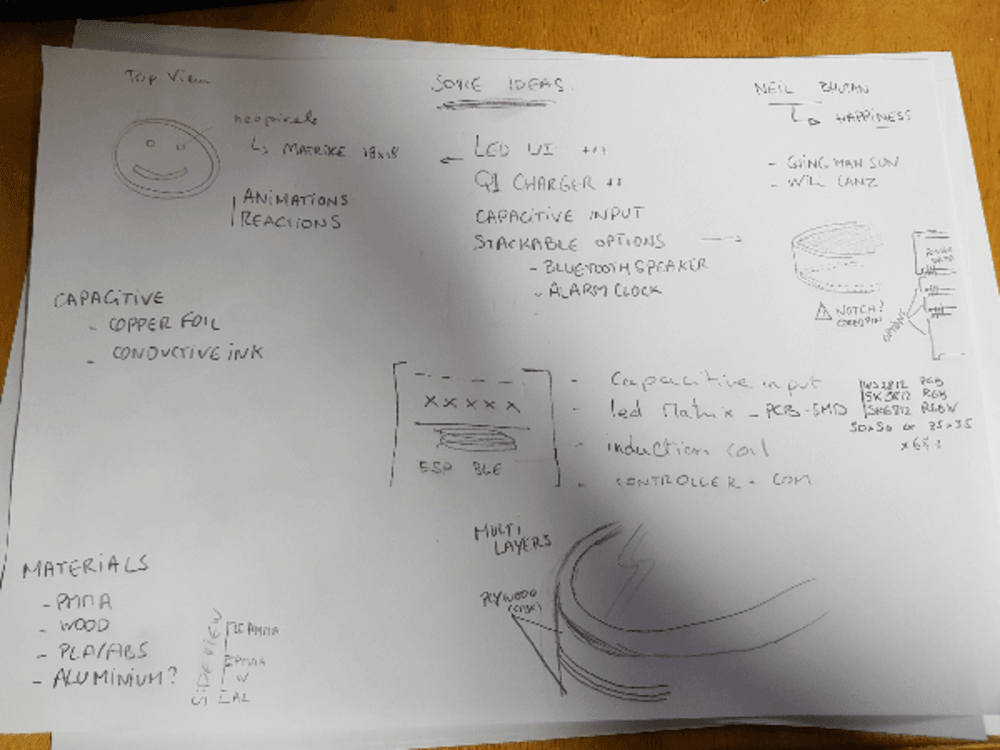 TOP VIEW
SOME IDEAS.
NEIL BHUTAN
HAPPINESS
neopixels
MATRIXE 18x18
ANIMATIONS
REACTIONS
LED UI +++
QI CHARGER ++
CAPACITIVE INPUT
STACKABLE OPTIONS
- BLUETOOTH SPEAKER
- ALARM CLOCK
- WILL CANZ
NOTCH?
OPTIONS
CAPACITIVE
- COPPER FOIL
- CONDUCTIVE INK
X X X X X
ESP BLE
- Capacitive input
- led Matrix - PCB-SMD
- induction coil
- CONTROLLER + COM
WS2812 PCB
SK6812 RGB
SK6812 RGBW
50x50 or 35x35
MULTI
LAYERS
PLYWOOD
MATERIALS
- PMMA
- WOOD
- PLA/ABS
- ALUMINIUM?
SIDE VIEW
PMMA
PMMA
W
AL